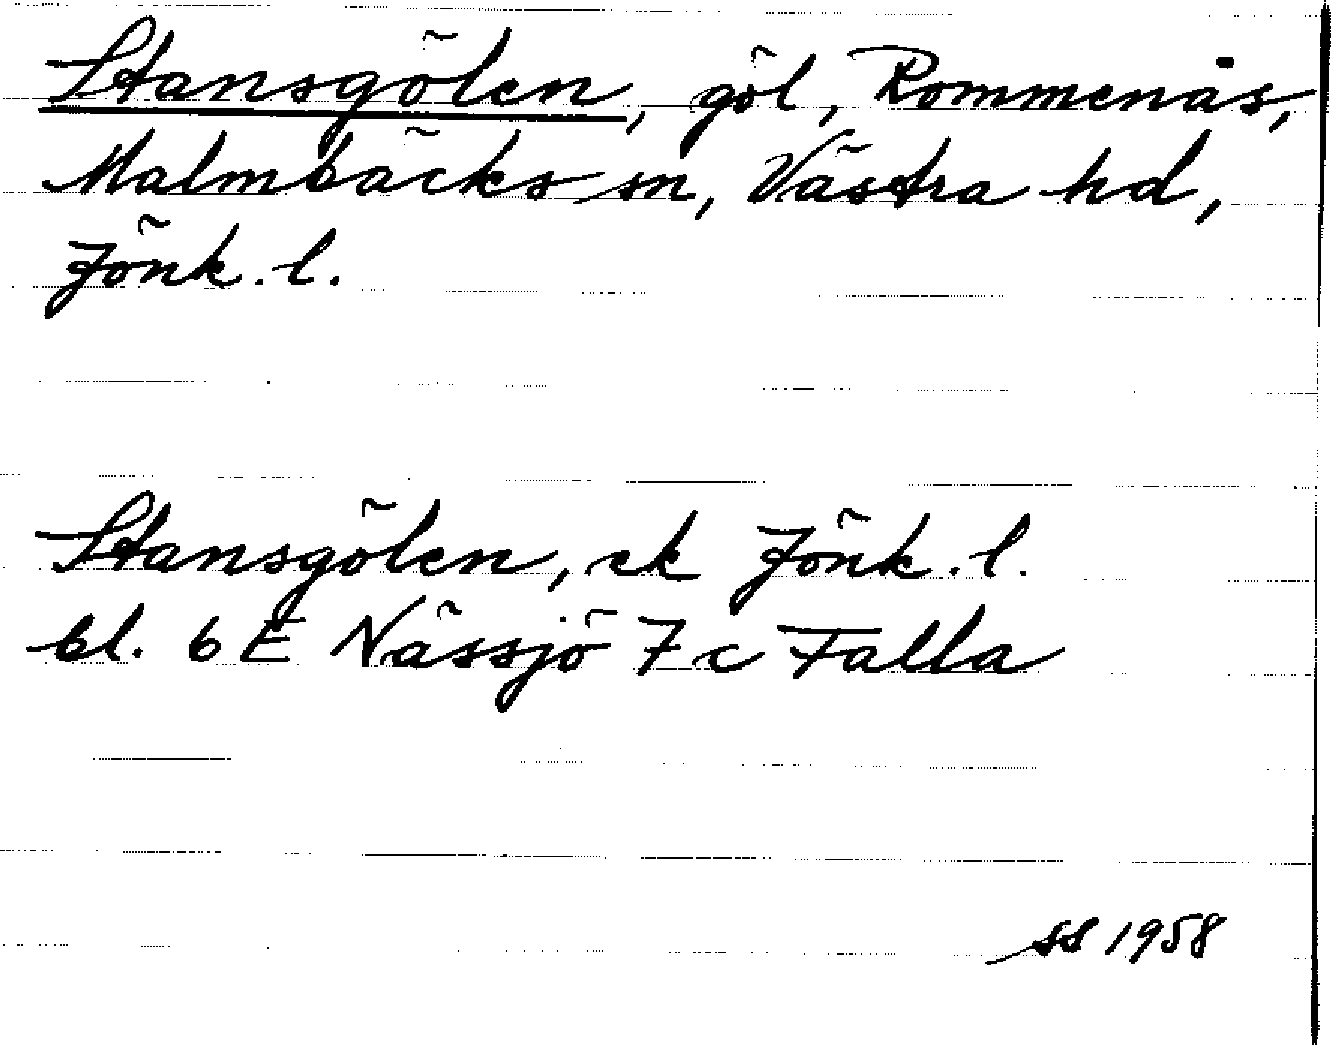 Stansgölen, göl, Rommenås,
Malmbäcks sn, Västra hd,
Jönk. l.
Stansgölen, ek Jönk. l.
bl. 6 E Nässjö 7 c Falla
SS 1958